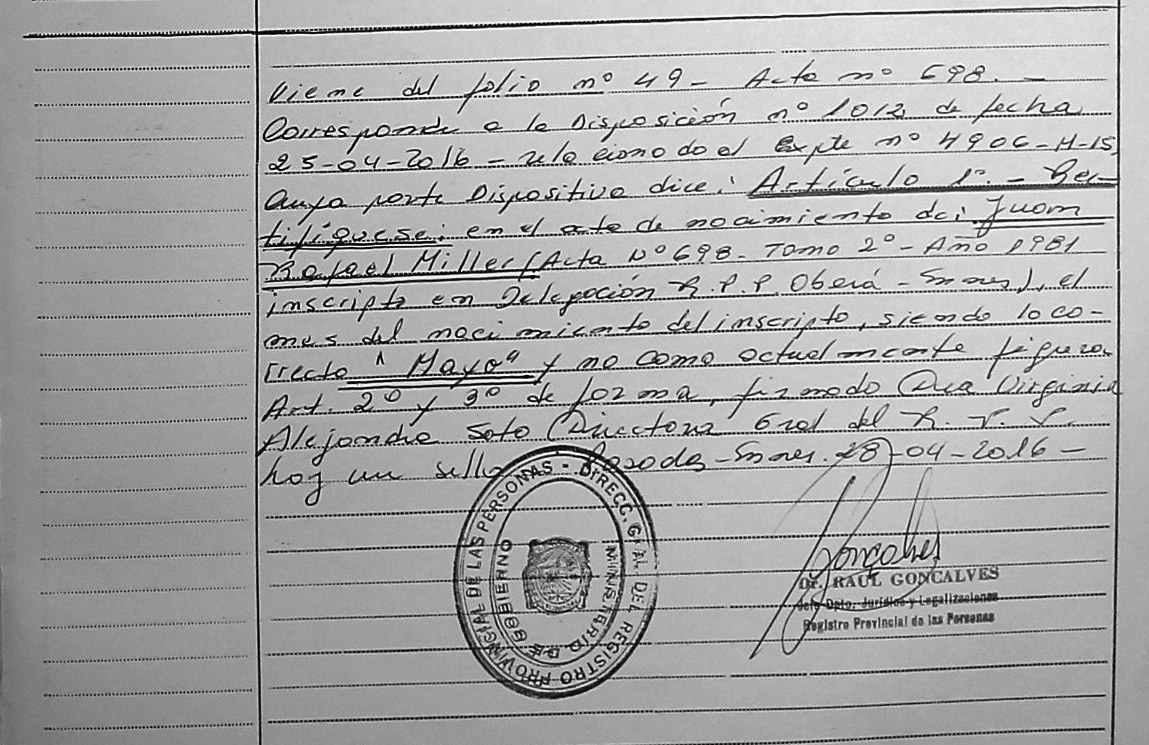 Viene del folio nº 49 - Acta nº 698. -
Corresponde a la Disposición nº 1012 de fecha
25-04-2016 - relacionado al Expte nº 4906-H-15,
Cuya parte Dispositiva dice: Artículo 1º. - Rec-
tifíquese: en el acta de nacimiento de: Juan
Rafael Miller (Acta Nº 698 - Tomo 2º - Año 1981
inscripta en Delegación R.P.P. Oberá - Smnes), el
mes del nacimiento del inscripto, siendo lo co-
rrecto "Mayo" y no como actualmente figura.
Art. 2º y 3º de forma, firmado Dra Virginia
Alejandra Soto Directora Gral del R. P. P.
hay un sello Posadas - Smnes. 28-04-2016 -
DIRECC. GRAL DEL REGISTRO PROVINCIAL DE LAS PERSONAS -
MINISTERIO DE GOBIERNO
Gonçalves
Dr. RAUL GONCALVES
Jefe Dpto. Jurídico y Legalizaciones
Registro Provincial de las Personas